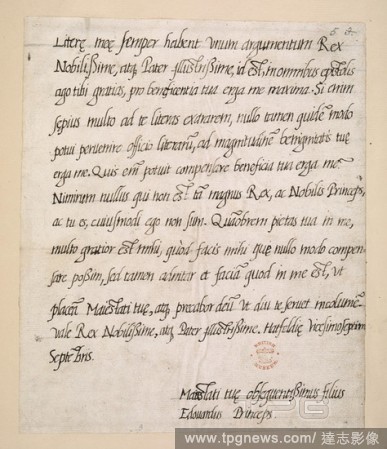 Literę meę semper habent unum argumentum Rex
Nobilissime, atq̨ Pater illustrissime, id est, in omnibus epistolis
ago tibi gratias, pro beneficentia tua erga me maxima. Si enim
sępius multo ad te literas exararem, nullo tamen quidẽ modo
potui pervenire officio literarũ, ad magnitudinẽ benignitatis tuę
erga me. Quis em̃ potuit compensare beneficia tua erga me?
Nimirum nullus qui non est tã magnus Rex, ac Nobilis Princeps,
ac tu es, cuiusmodi ego non sum. Quãobrem pietas tua in me,
multo gratior est mihi, quòd facis mihi quę nullo modo compen-
sare possum, sed tamen adnitar et faciã quod in me est, ut
placeã Maiestati tuę, atq̨ precabor deũ ut diu te servet incolumẽ.
vale Rex Nobilissime, atq̨ Pater illustrissime. Hatfeldię vicesimo septim
Septẽbris.
Maiestati tuę obsequentissimus filius
Edouardus Princeps.
BRITISH
MUSEUM
www.tpgnews.com / 達志影像